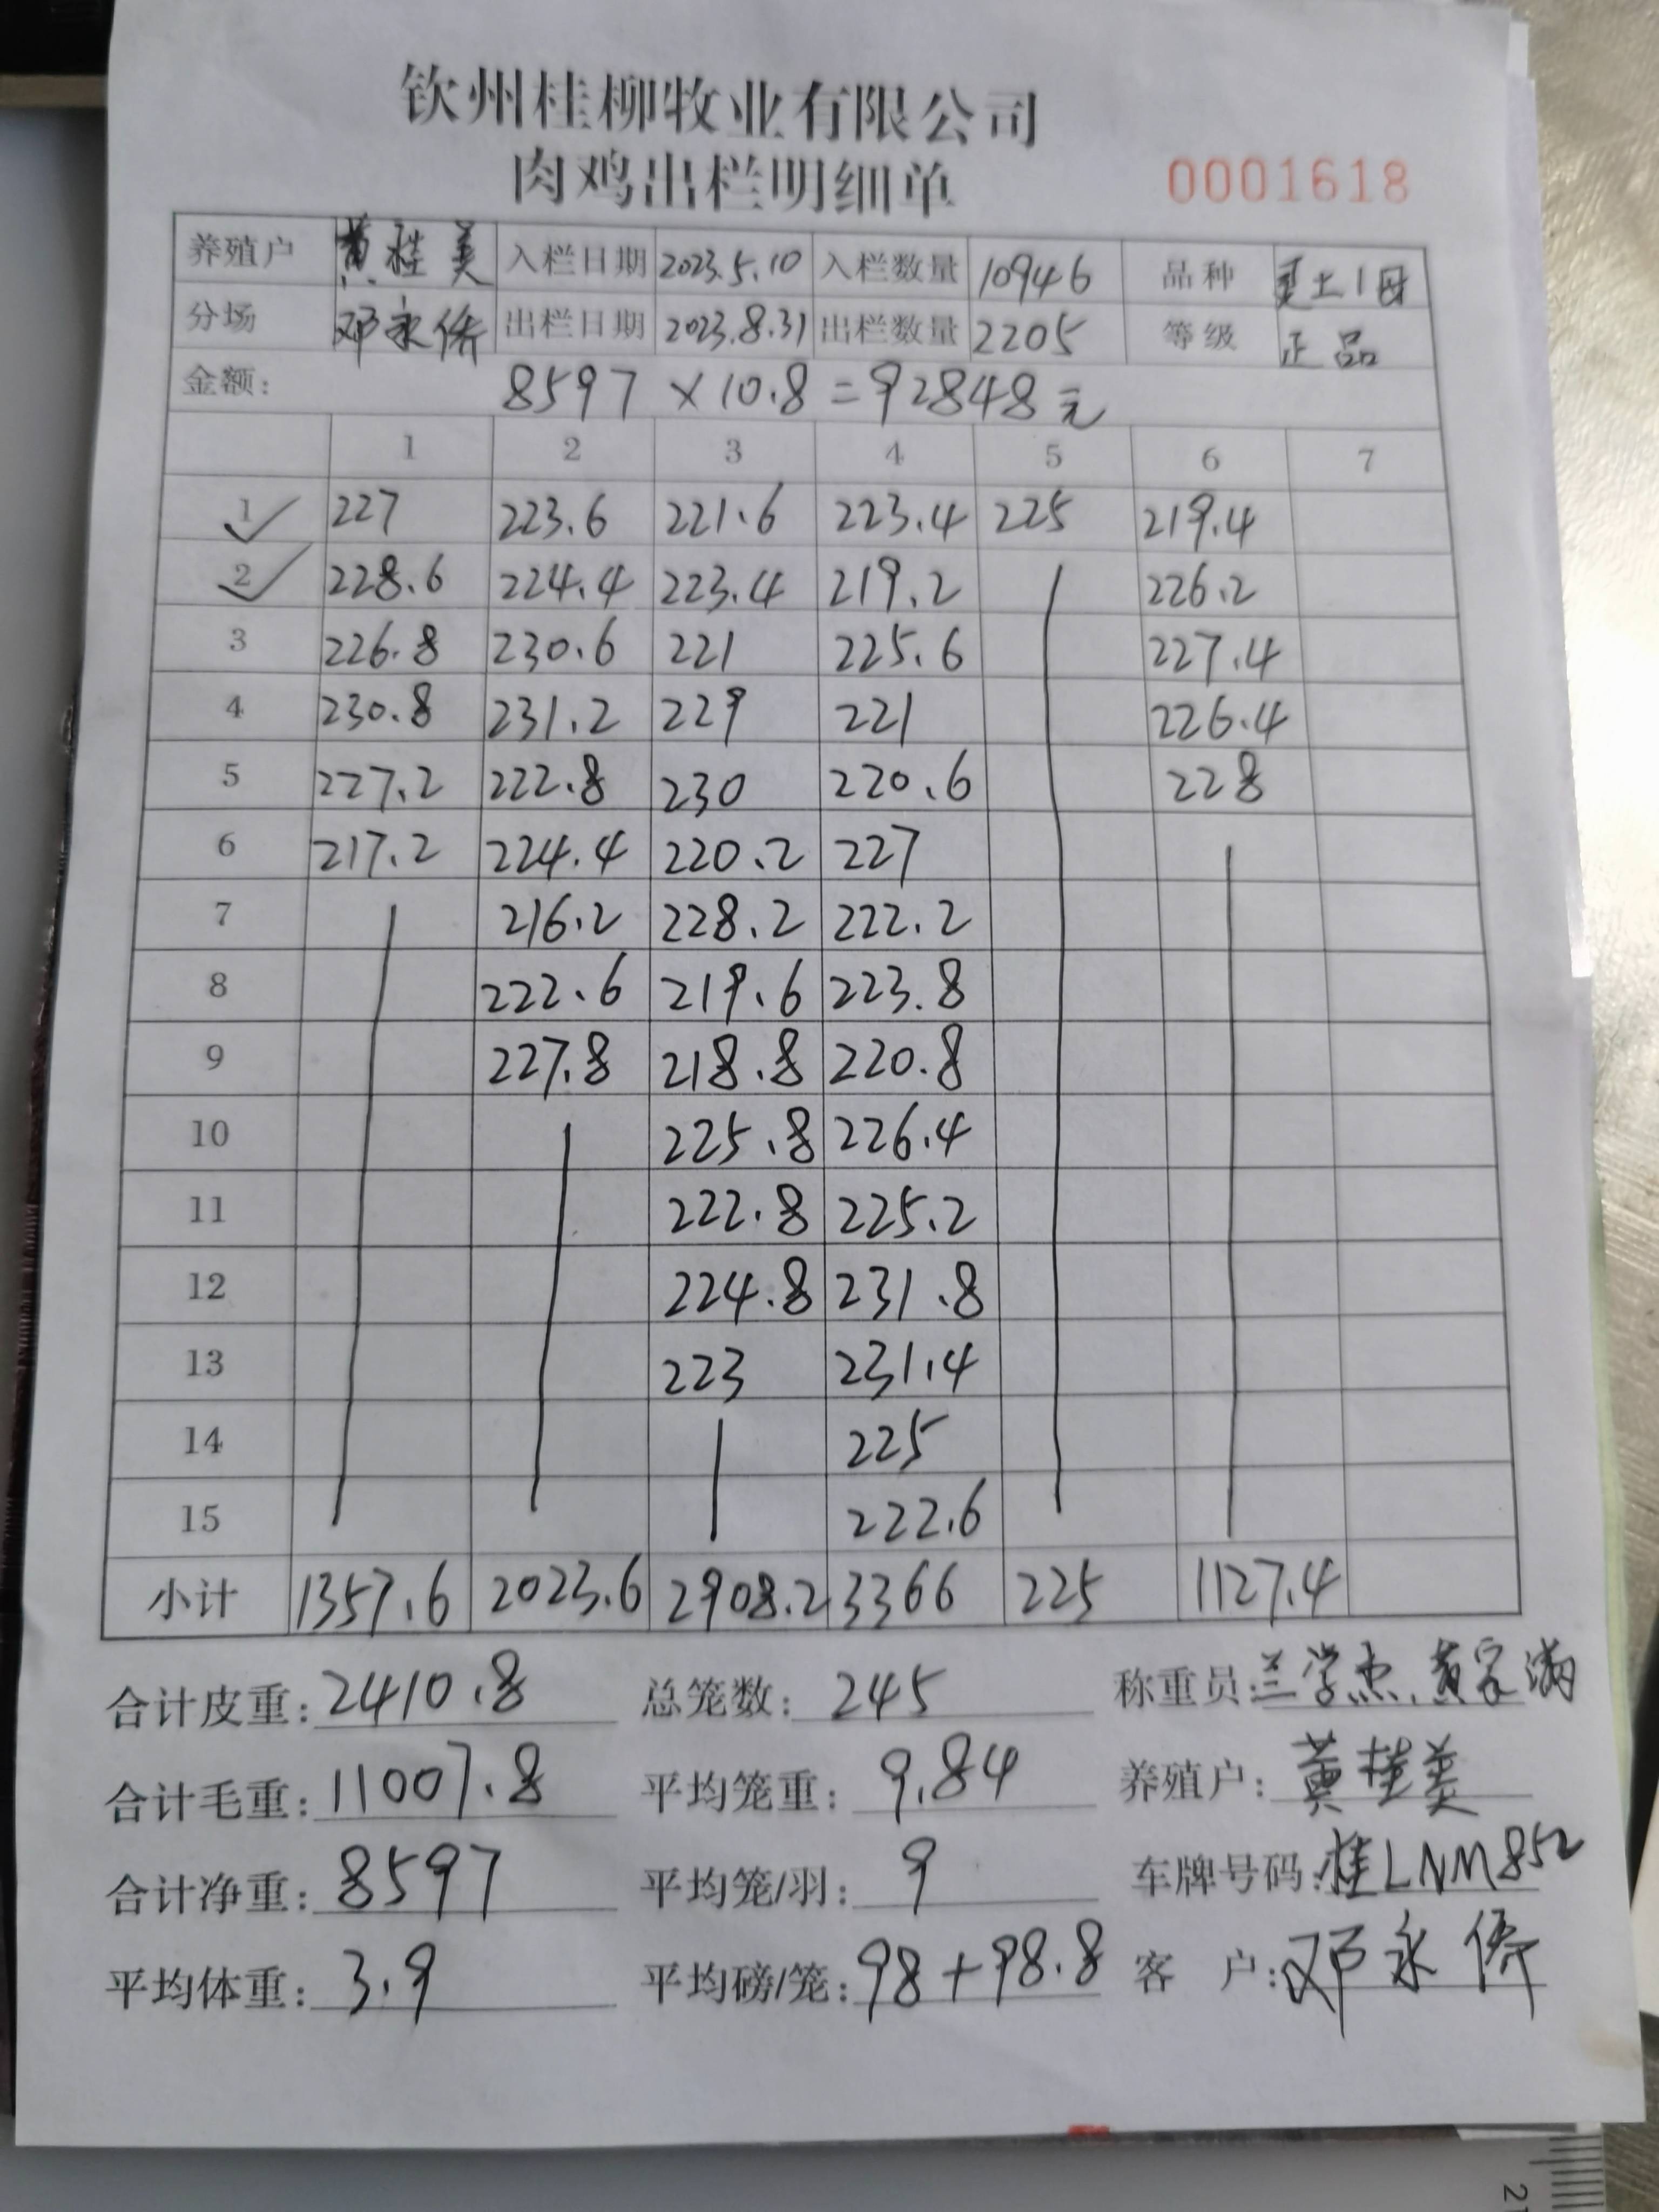 钦州桂柳牧业有限公司
肉鸡出栏明细单 0001618
养殖户 黄桂美 入栏日期 2023.5.10 入栏数量 10946 品种 土1母
分场 邓永侨 出栏日期 2023.8.31 出栏数量 2205 等级 正品
金额: 8597 × 10.8 = 92848元
1 2 3 4 5 6 7
1 227 223.6 221.6 223.4 225 219.4
2 228.6 224.4 223.4 219.2 226.2
3 226.8 230.6 221 225.6 227.4
4 230.8 231.2 229 221 226.4
5 227.2 222.8 230 220.6 228
6 217.2 224.4 220.2 227
7 216.2 228.2 222.2
8 222.6 219.6 223.8
9 227.8 218.8 220.8
10 225.8 226.4
11 222.8 225.2
12 224.8 231.8
13 223 231.4
14 225
15 222.6
小计 1357.6 2023.6 2908.2 3366 225 1127.4
合计皮重: 2410.8 总笼数: 245 称重员: 兰学杰、黄家满
合计毛重: 11007.8 平均笼重: 9.84 养殖户: 黄桂美
合计净重: 8597 平均笼/羽: 9 车牌号码: 桂LNM852
平均体重: 3.9 平均磅/笼: 98+98.8 客户: 邓永侨